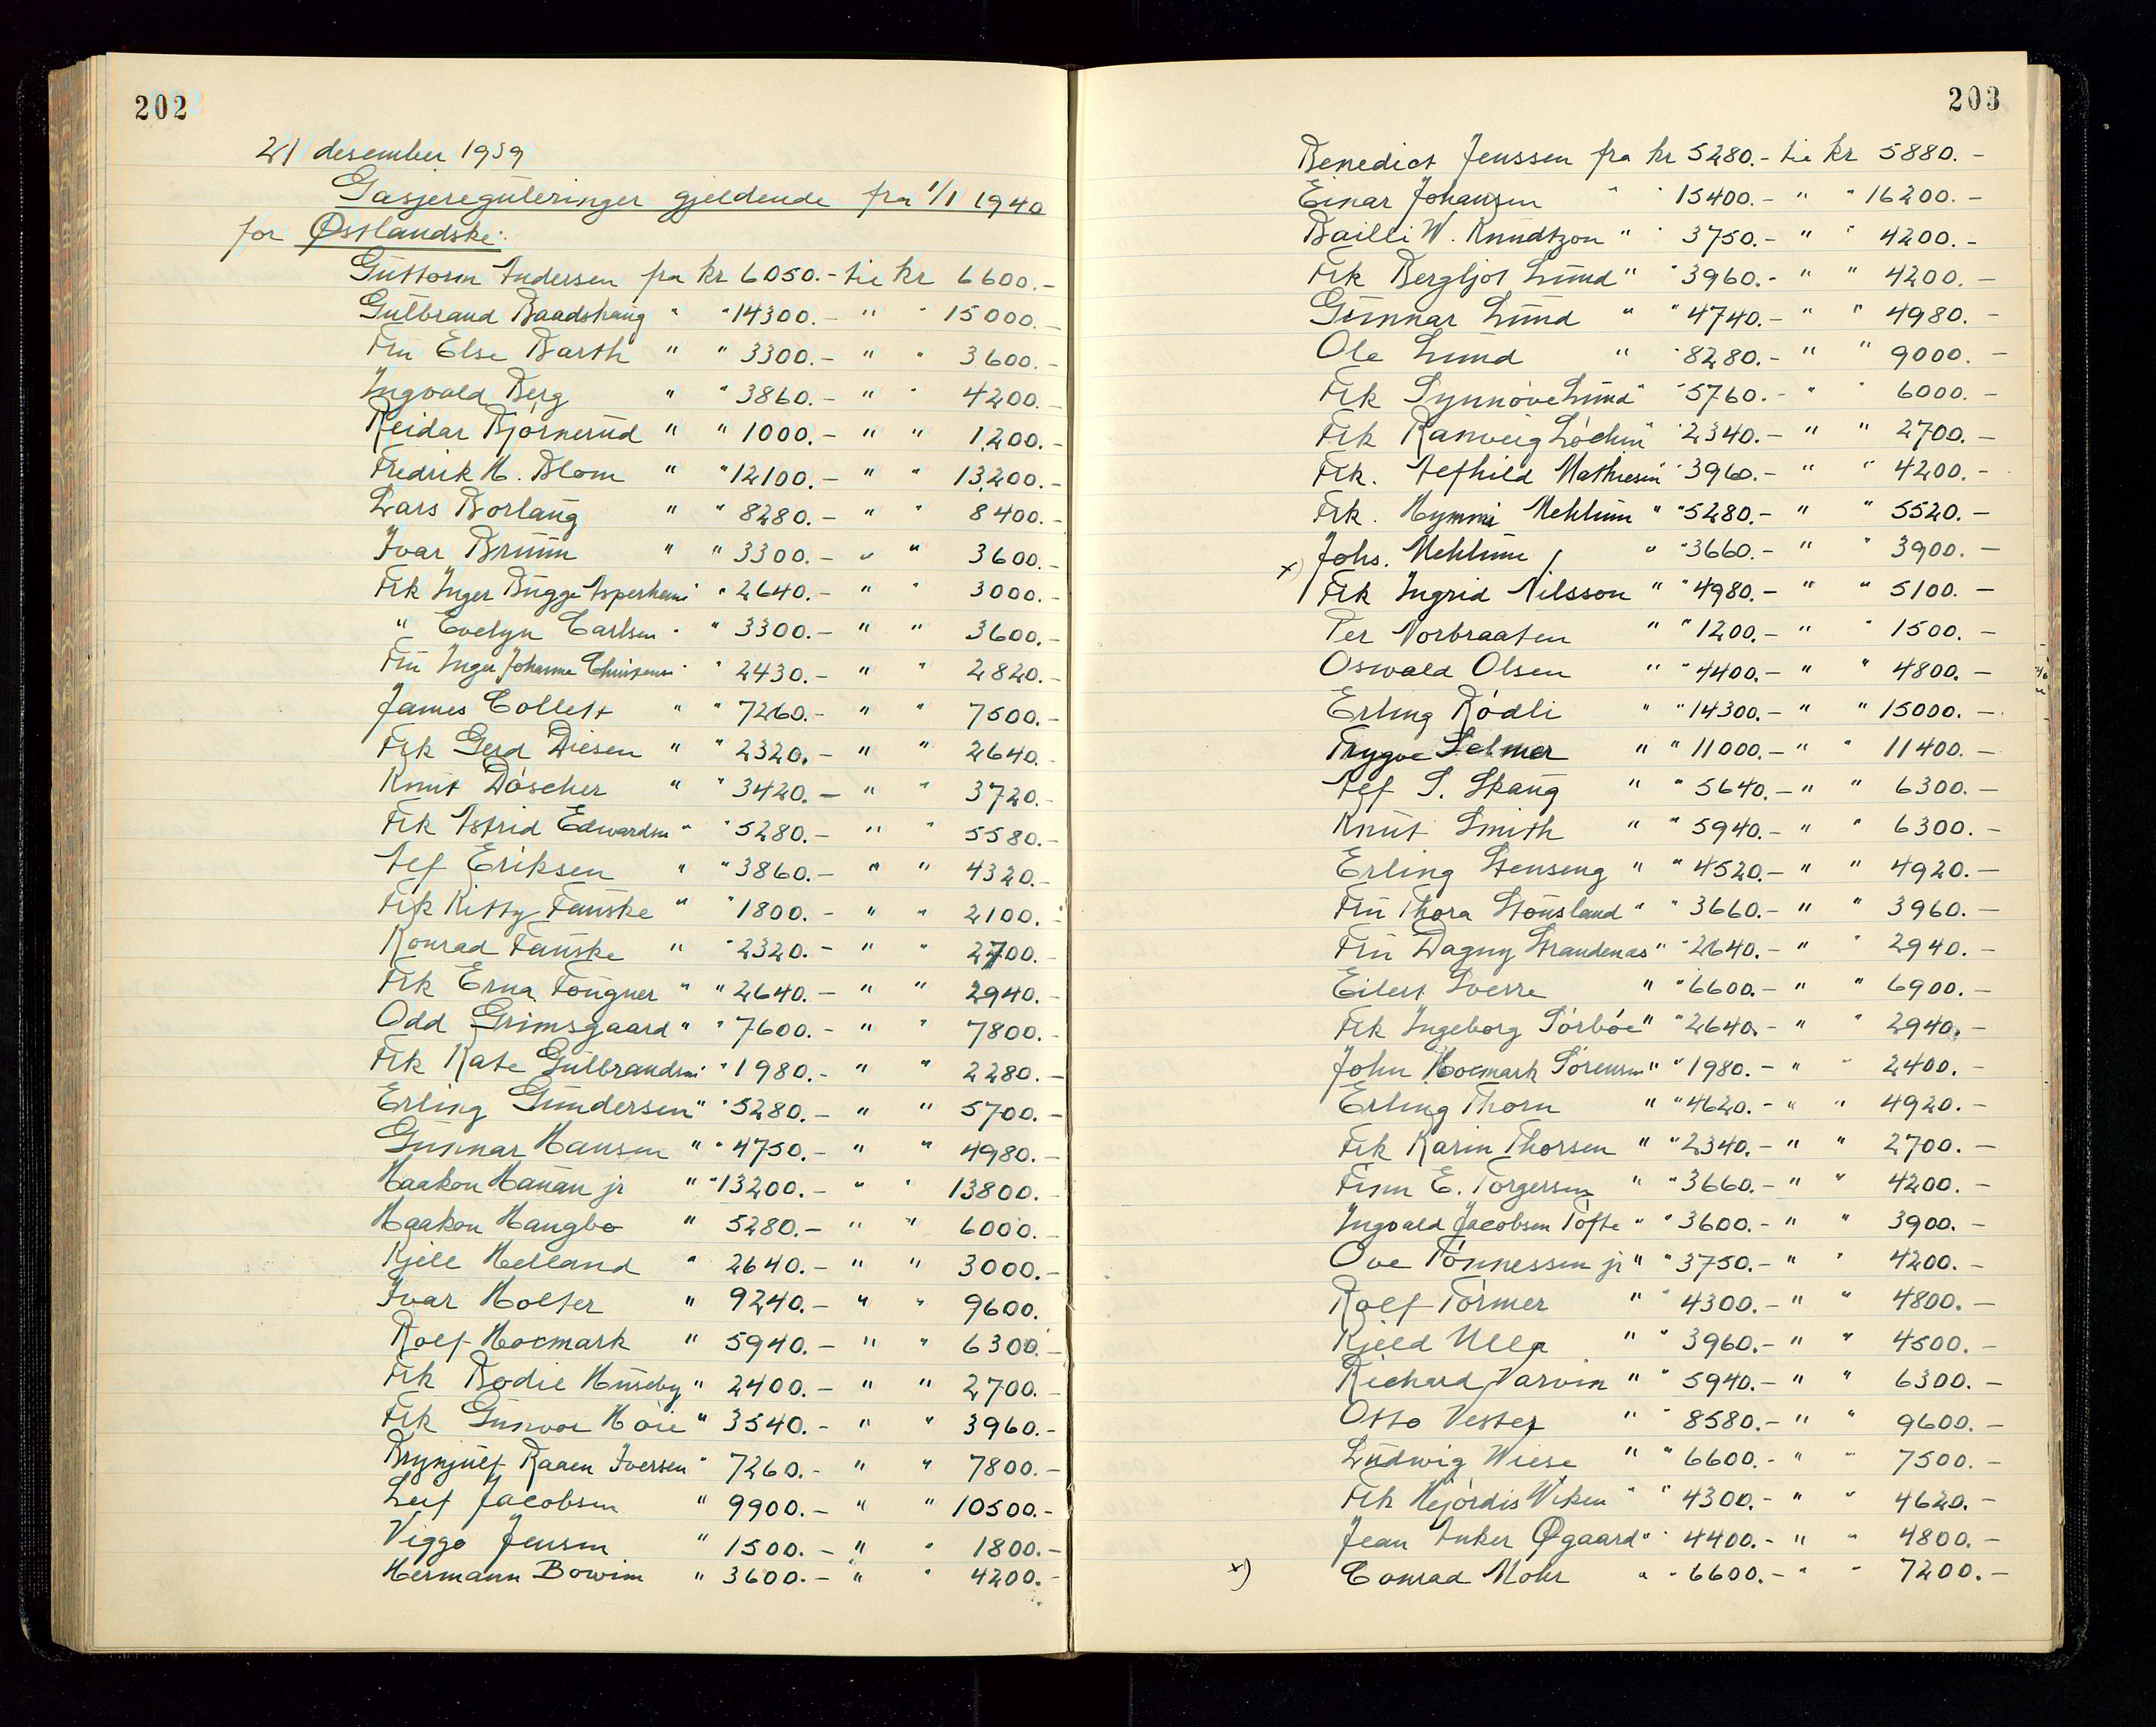 202
21 desember 1939
Gasjereguleringer gjeldende fra 1/1 1940
for Østlandske:
Guttorm Andersen fra kr 6050.- til kr 6600.-
Gulbrand Baadshaug " " 14300.- " " 15000.-
Fru Else Barth " " 3300.- " " 3600.-
Ingvald Berg " " 3860.- " " 4200.-
Reidar Bjørnerud " " 1000.- " " 1200.-
Fredrik H. Blom " " 12100.- " " 13200.-
Lars Borlaug " " 8280.- " " 8400.-
Ivar Bruun " " 3300.- " " 3600.-
Frk Inger Bugge Asperheim " 2640.- " " 3000.-
" Evelyn Carlsen " " 3300.- " " 3600.-
Fru Inger Johanne Christensen " 2430.- " " 2820.-
James Collett " " 7260.- " " 7500.-
Frk Gerd Diesen " " 2320.- " " 2640.-
Knut Döscher " " 3420.- " " 3720.-
Frk Astrid Edwardsen " " 5280.- " " 5580.-
Alf Eriksen " " 3860.- " " 4320.-
Frk Kitty Fauske " " 1800.- " " 2100.-
Konrad Fauske " " 2320.- " " 2700.-
Frk Erna Fougner " " 2640.- " " 2940.-
Odd Grimsgaard " " 7600.- " " 7800.-
Frk Kate Gulbrandsen " 1980.- " " 2280.-
Erling Gundersen " " 5280.- " " 5700.-
Gunnar Hansen " " 4750.- " " 4980.-
Haakon Hauan jr " " 13200.- " " 13800.-
Haakon Haugbo " 5280.- " " 6000.-
Kjell Helland " 2640.- " " 3000.-
Ivar Holter " 9240.- " " 9600.
Rolf Hocmark " 5940.- " " 6300.-
Frk Bodil Huseby " 2400.- " " 2700.-
Frk Gunvor Höie " 3540.- " " 3960.-
Brynjulf Raaen Iversen " 7260.- " " 7800.-
Leif Jacobsen " 9900.- " " 10500.-
Viggo Jensen " 1500.- " " 1800.-
Hermann Bowim " 3600.- " " 4200.-
203
Benedict Jenssen fra kr 5280.- til kr 5880.-
Einar Johansen " " 15400.- " " 16200.-
Bailli W. Knudtzon " " 3750.- " " 4200.-
Frk Bergljot Lund " " 3960.- " " 4200.-
Gunnar Lund " " 4740.- " " 4980.-
Ole Lund " " 8280.- " " 9000.-
Frk Synnöve Lund " " 5760.- " " 6000.-
Frk Ranveig Löchen " " 2340.- " " 2700.-
Frk. Alfhild Mathiesen " 3960.- " " 4200.-
Frk. Hymmi Mehlum " " 5280.- " " 5520.-
x) Johs. Mehlum " " 3660.- " " 3900.-
Frk Ingrid Nilsson " " 4980.- " " 5100.-
Per Norbraaten " " 1200.- " " 1500.-
Oswald Olsen " " 4400.- " " 4800.-
Erling Rödli " " 14300.- " " 15000.-
Trygve Selmer " " 11000.- " " 11400.-
Alf S. Skaug " " 5640.- " " 6300.-
Knut Smith " " 5940.- " " 6300.-
Erling Stenseng " " 4520.- " " 4920.-
Fru Thora Stousland " " 3660.- " " 3960.-
Fru Dagny Strandenas " " 2640.- " " 2940.-
Eilert Sverre " " 6600.- " " 6900.-
Frk Ingeborg Sörböe " " 2640.- " " 2940.-
John Hocmark Sörensen " " 1980.- " " 2400.-
Erling Thorn " " 4620.- " " 4920.-
Frk Karin Thorsen " " 2340.- " " 2700.-
Finn E. Torgersen " " 3660.- " " 4200.-
Ingvald Jacobsen Tofte " " 3600.- " " 3900.-
Ove Tönnessen jr " " 3750.- " " 4200.-
Rolf Törmer " " 4300.- " " 4800.-
Kjeld Ulla " " 3960.- " " 4500.-
Richard Varvin " " 5940.- " " 6300.-
Otto Vester " " 8580.- " " 9600.-
Ludwig Wiese " " 6600.- " " 7500.-
Frk Hejördis Wiken " " 4300.- " " 4620.-
Jean Anker Øgaard " " 4400.- " " 4800.-
x) Conrad Mohr " " 6600.- " " 7200.-